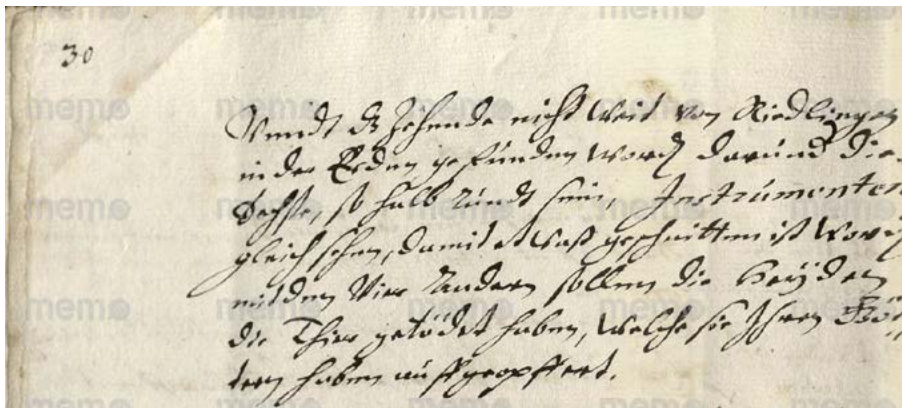 30
Unndt dz Zehende nicht weit von Riedlingen
in der Erden gefunden word, darund die
Sechste, so halb Rundt sein, Instrumenten
gleich sehen, damit etwaß geschnitten ist word
mit den Vier Andern sollen die Heÿden
die Thier getödet haben, welche sie Ihren Göt
tern haben auffgeopffert.